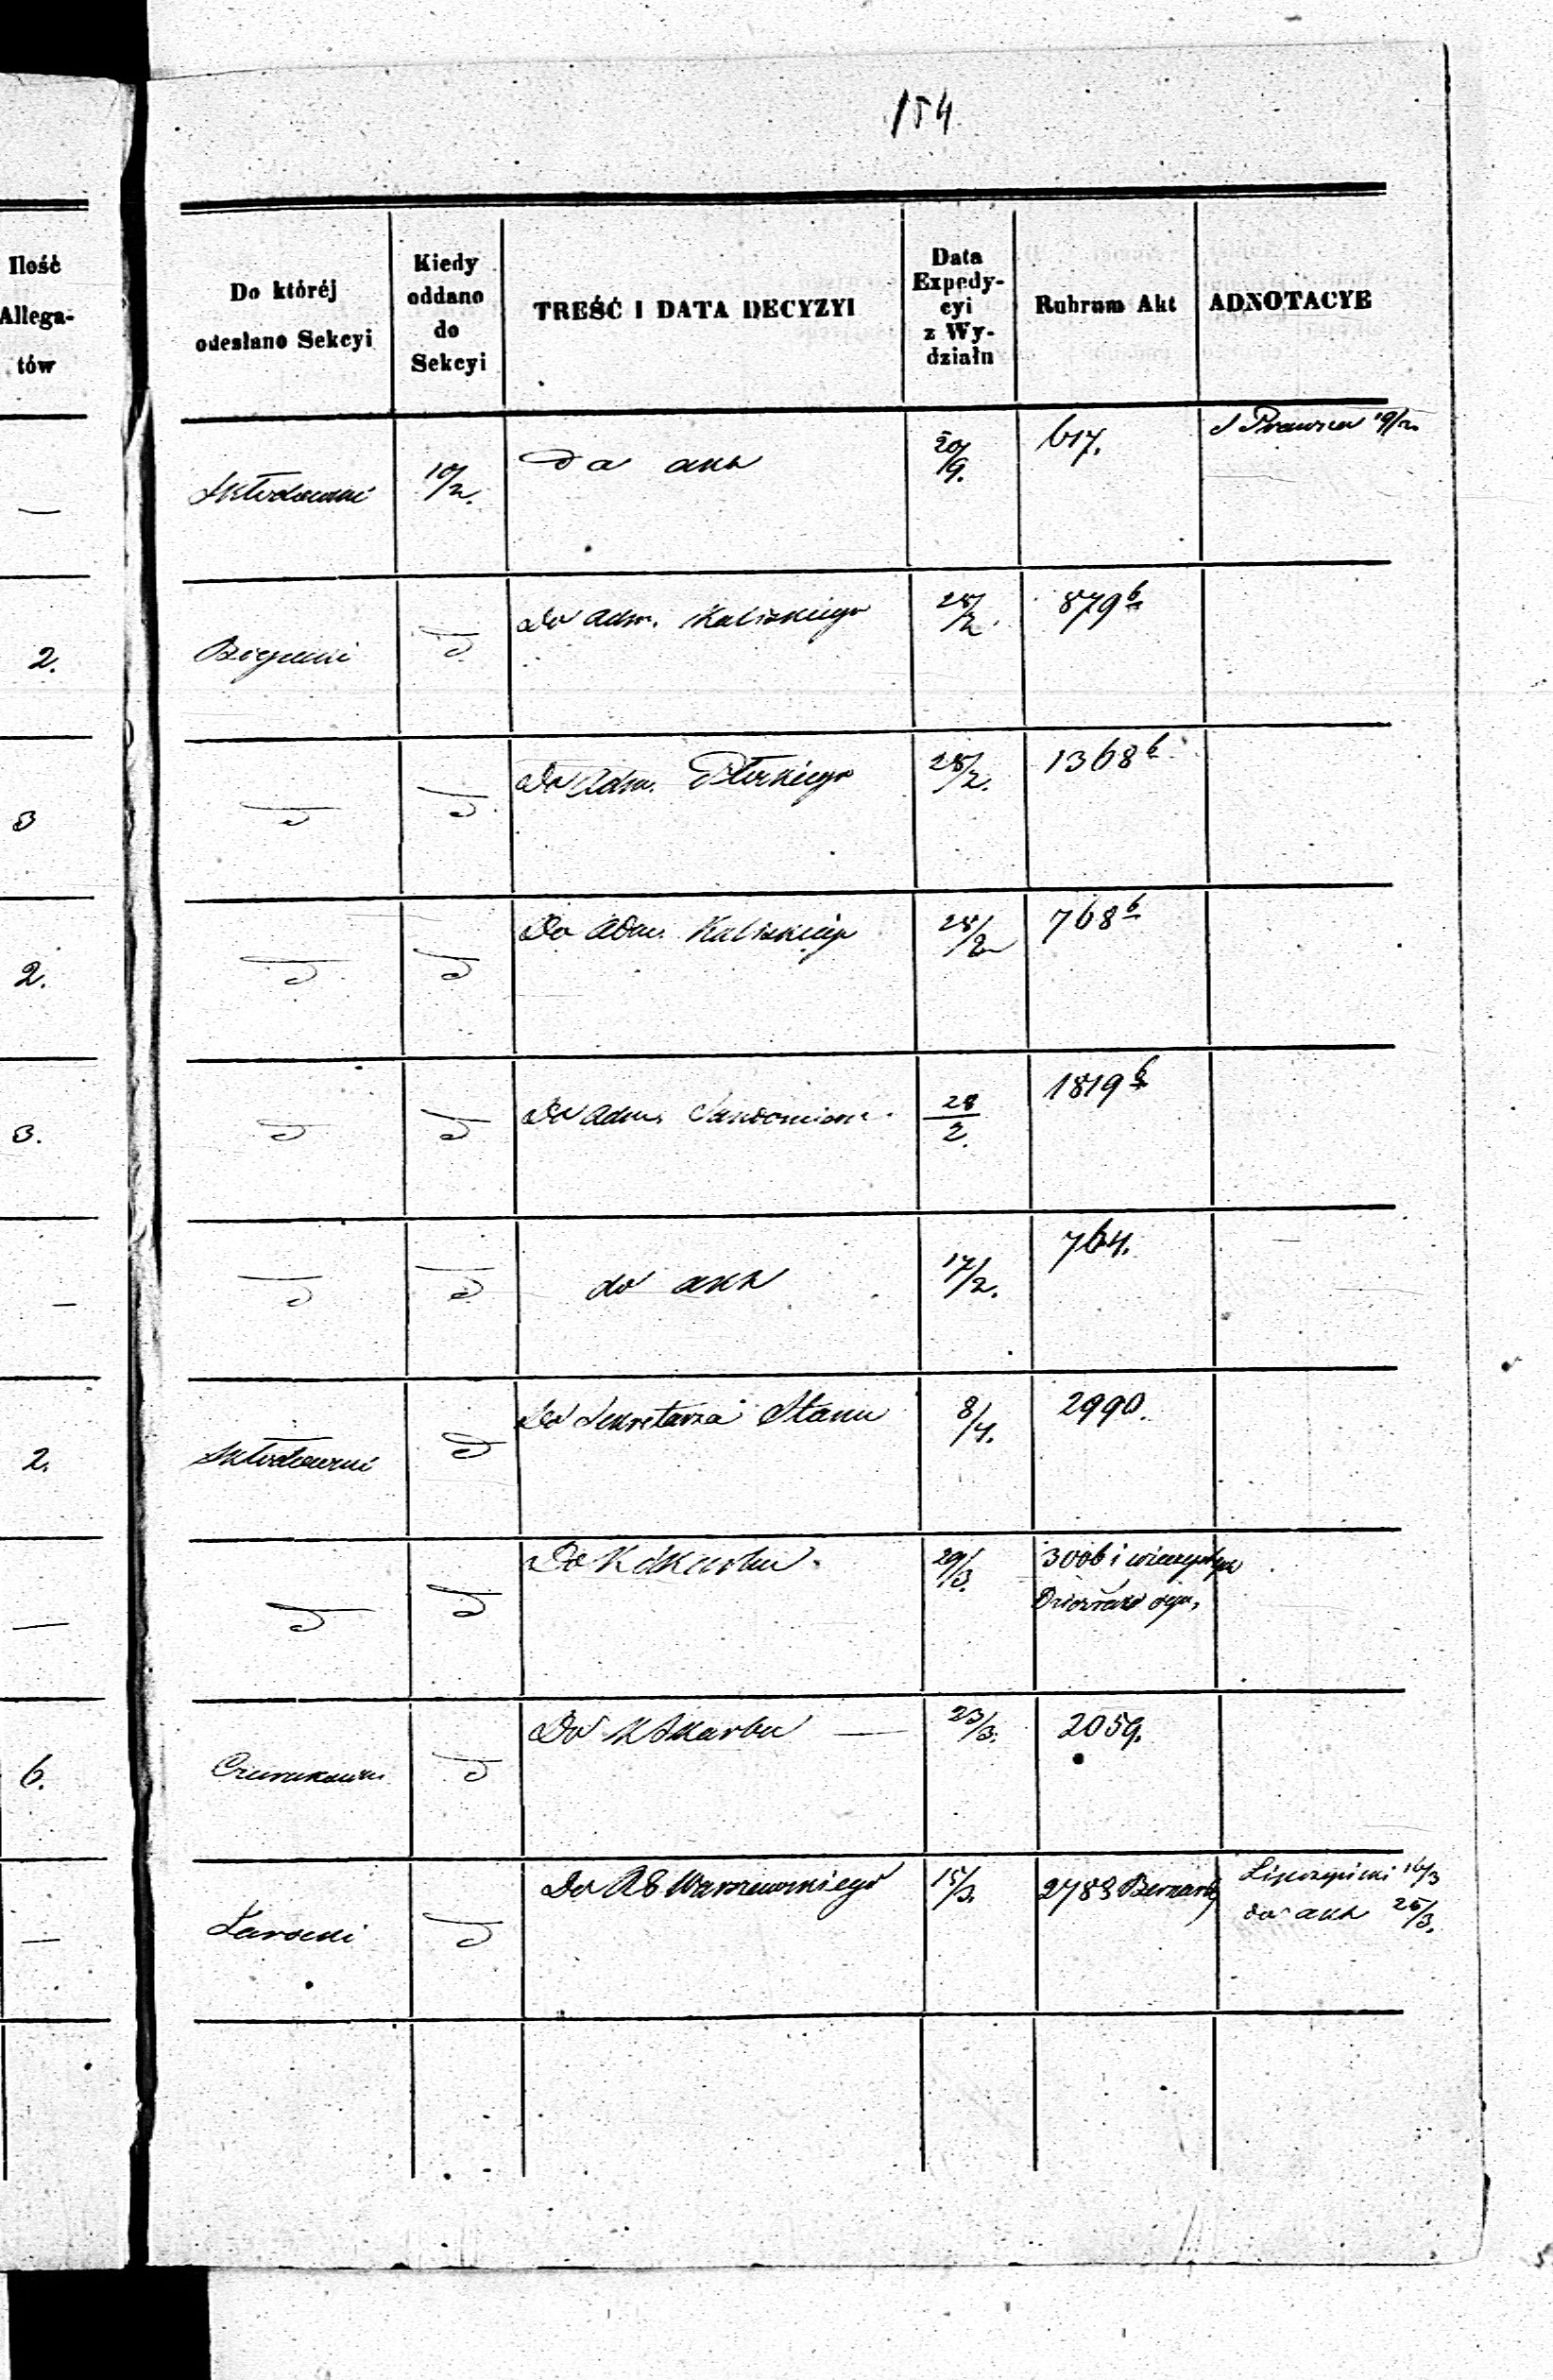 154
Ilość
Allega-
tów
Do któréj
odesłano Sekcyi
Kiedy
oddano
do
Sekcyi
TREŚĆ I DATA DECYZYI
Data
Expedy-
cyi
z Wy-
działu
Rubrum Akt
ADNOTACYE
— Skłodowski 10/2. Do akt 20/9. 617. S Prawna 19/2.
2. d Do Adm. Kaliskiego 28/2. 879 b
3 d d Do Adm. Płockiego 28/2. 1368 b
2. d d Do Adm. Kaliskiego 28/2 768 b
3. d d Do Adm. Sandomiers. 28/2. 1819 b
— d d do akt 17/2. 764.
2. Skłodowski d Do Sekretarza Stanu 8/4. 2990.
— d d Do K Skarbu. 29/3. 3006 i
6. d Do K Skarbu — 23/3. 2059.
— d Do RG Warszawskiego 15/3. 2783 16/3
do akt 25/3.